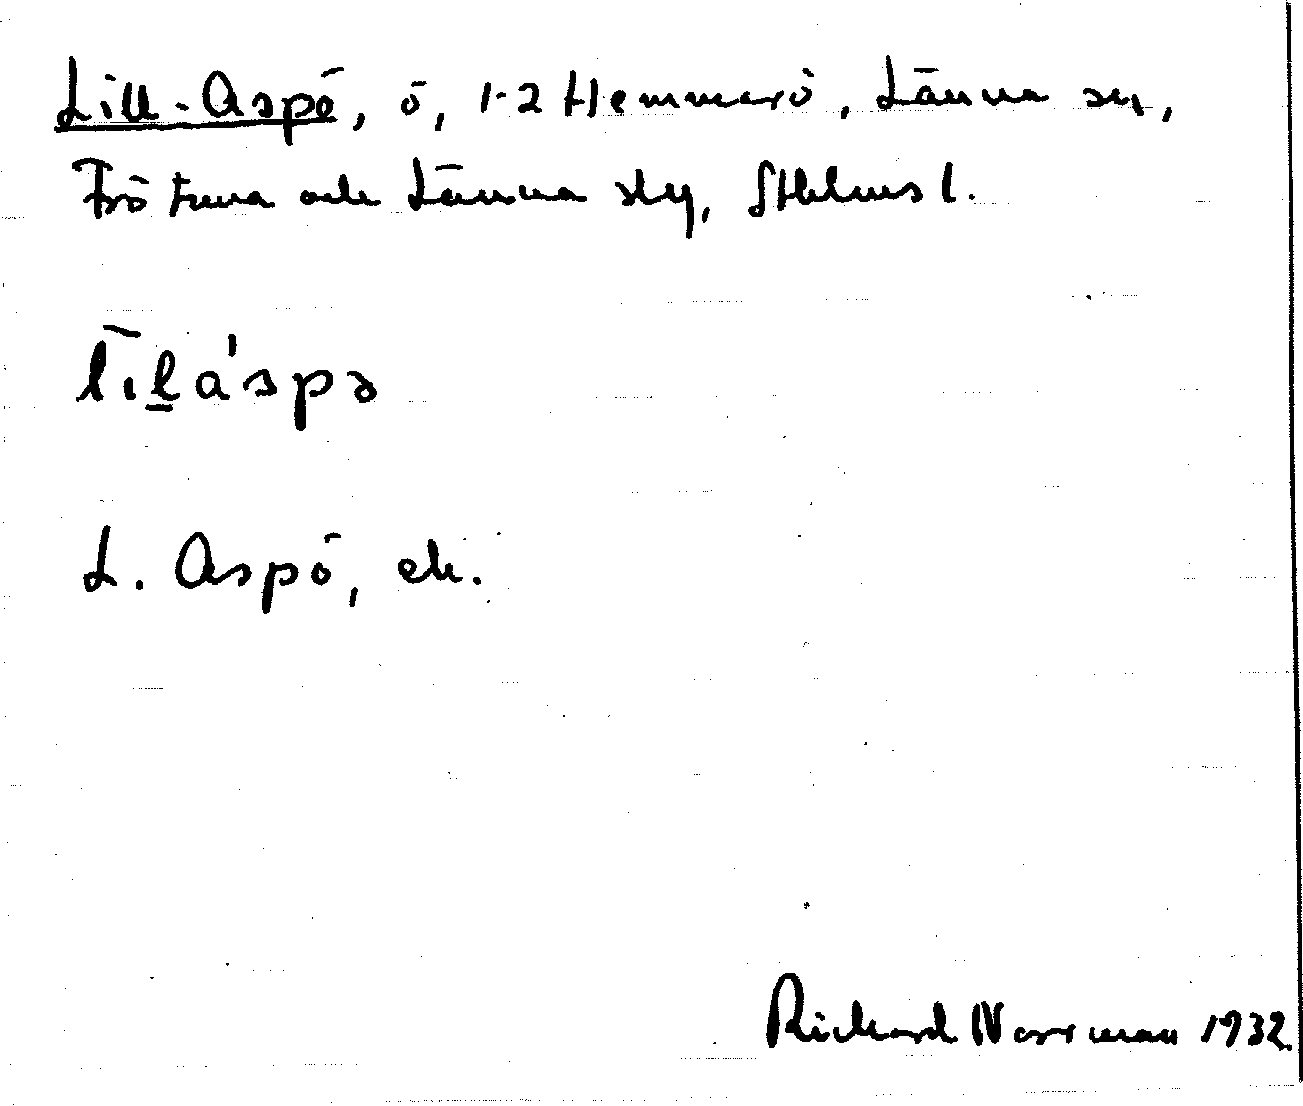 Lill-Aspö, ö, 1-2 Hemmarö, Länna sn,
Frötuna och Länna slg, Sthlms l.
līl̠a'spə
L. Aspö, ek.
Rickard Norrman 1932